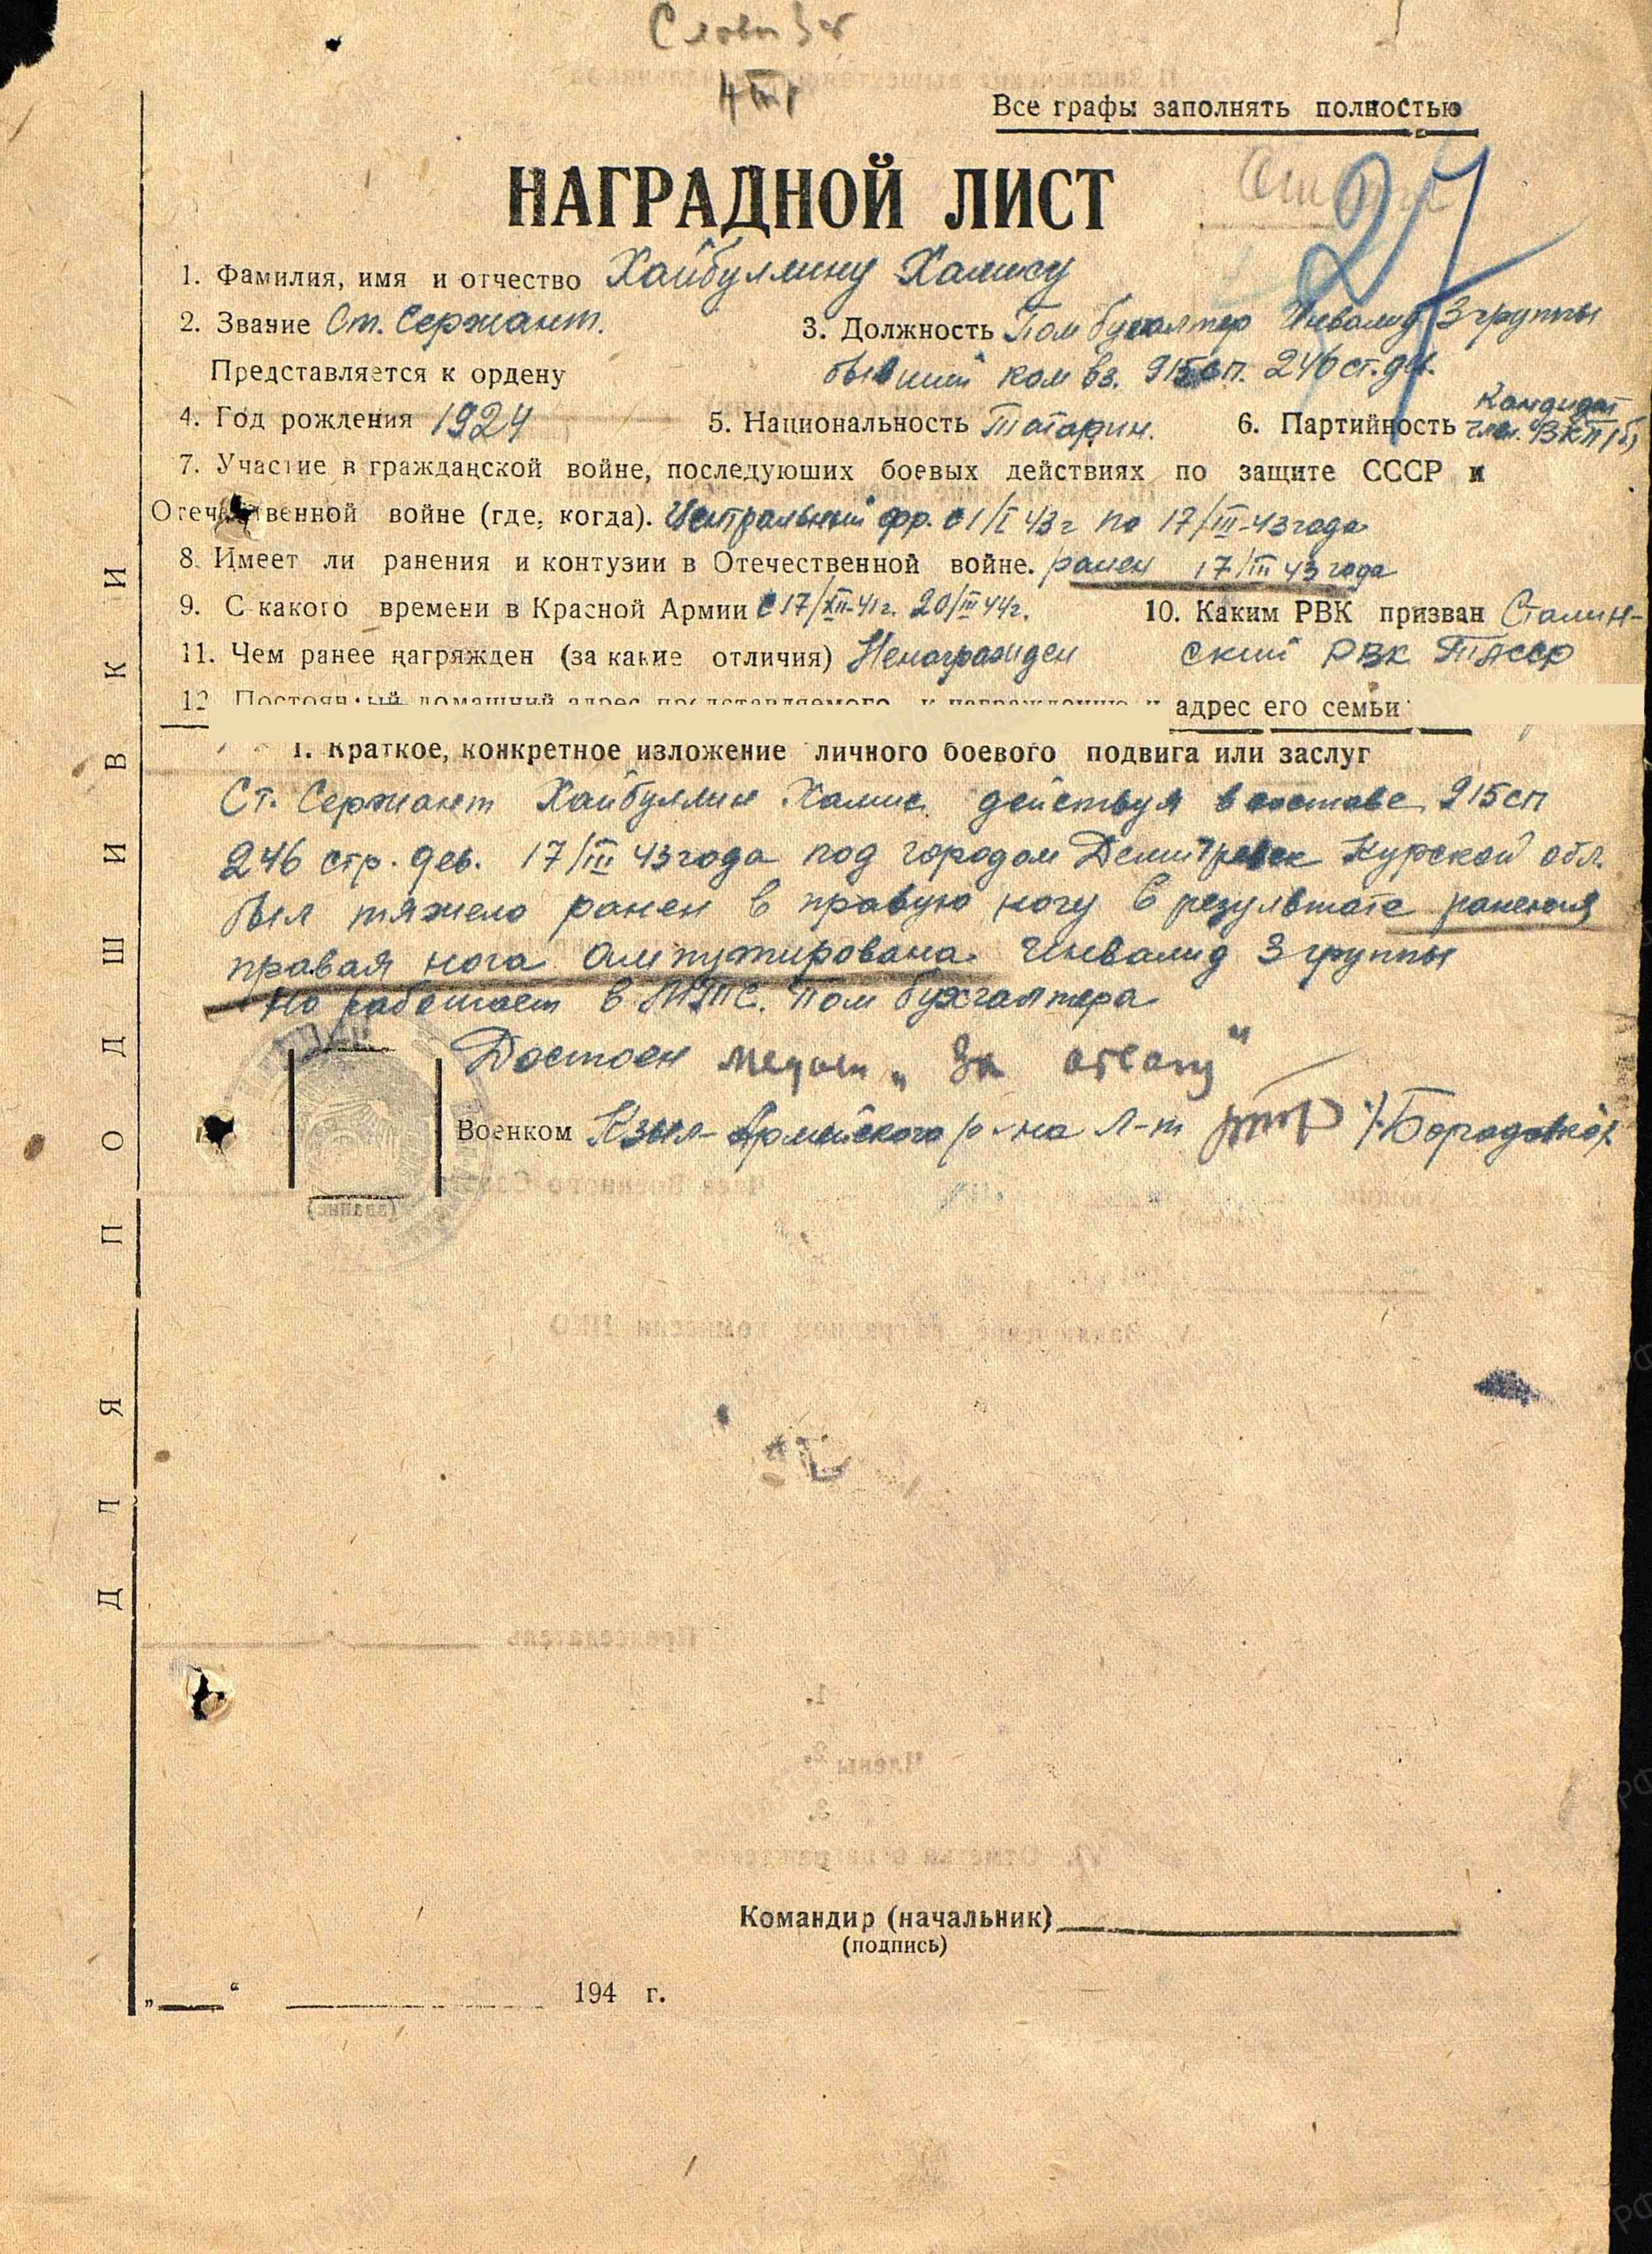 Слови 3 ст
Все графы заполнять полностью
НАГРАДНОЙ ЛИСТ
27
1. Фамилия, имя и отчество Хайбуллину Хамису
2. Звание Ст. Сержант. 3. Должность Пом бухалтер Инвалид 3 группы
Представляется к ордену бывший ком вз. 915 сп. 246 ст. див.
4. Год рождения 1924 5. Национальность Татарин. 6. Партийность Кандидат
член. ВКП(б)
7. Участие в гражданской войне, последующих боевых действиях по защите СССР и
Отечественной войне (где, когда). Центральный фр. с 1/I 43 г по 17/III-43 года
8. Имеет ли ранения и контузии в Отечественной войне. ранен 17/III 43 года
9. С какого времени в Красной Армии с 17/XII-41 г. 20/III 44 г. 10. Каким РВК призван Сталин-
11. Чем ранее награжден (за какие отличия) Ненагражден ский РВК ТАССР
12 Постоянный домашний адрес представляемого к награждению и адрес его семьи
1. Краткое, конкретное изложение личного боевого подвига или заслуг
Ст. Сержант Хайбуллин Хамис действуя в составе 915 сп
246 стр. дев. 17/III 43 года под городом Демитревск Курской обл.
был тяжело ранен в правую ногу в результате ранения
правая нога ампутирована. Инвалид 3 группы
но работает в МТС. пом бухгалтера
Достоен медали „За отвагу"
Военком Кзыл-Армейского р-на л-т /Бородавко/
ДЛЯ ПОДШИВКИ
Командир (начальник)
(подпись)
„ “ 194 г.